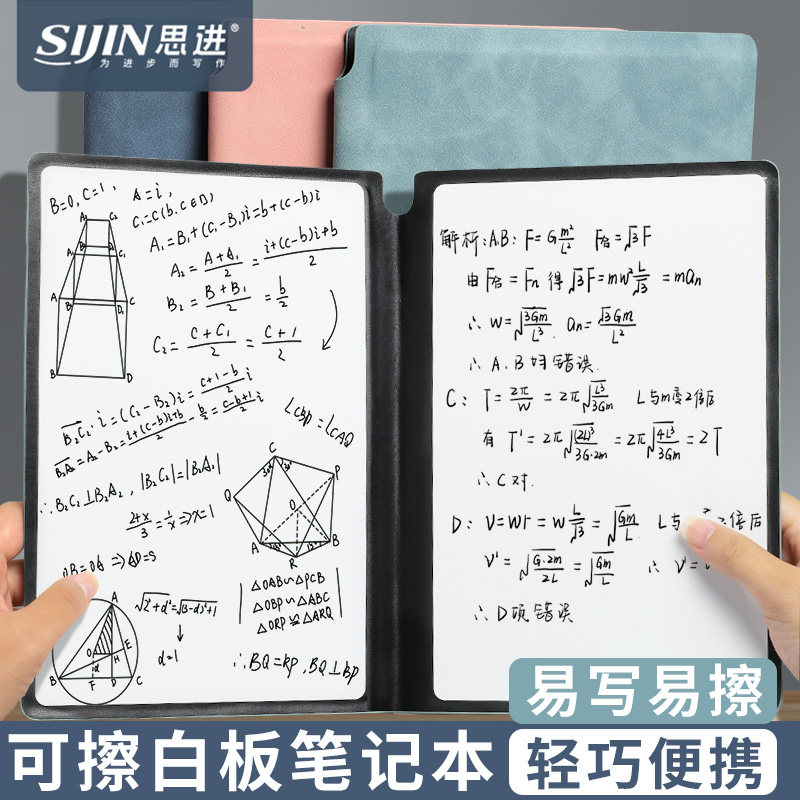 SIJIN思进®
为进步而写作
B=0, C=1, A=i,
C₁=C(b.c∈D)
A₁=B₁+(C₁-B₁)i=b+(c-b)i
A₂=(A+A₁)/2=(i+(c-b)i+b)/2
B₂=(B+B₁)/2=b/2
C₂=(C+C₁)/2=(c+1)/2
B₂C₂·i=(C₂-B₂)i=(c+1-b)/2 i
B₂A₂=A₂-B₂=(i+(c-b)i+b)/2-b/2=(c-b+1)/2 i
∴B₂C₂⊥B₂A₂, |B₂C₂|=|B₂A₂|
(2+x)/3=1/x⇒x=1
∠cbp=∠CAQ
A C₁
B D₁
A C
B D
C
P
Q
O
A B
R
△OAB∽△PCB
△OBP∽△ABC
△ORP≌△ARQ
∴BQ=RP, BQ⊥BP
A
O E
H
B F D C
d=1
解析:A.B: F=G m²/L² F合=√3F
由F合=Fn 得 √3F=mw² L/√3=man
∴w=√(3Gm/L³) an=√3Gm/L²
∴A.B均错误.
C: T=2π/w=2π√(L³/3Gm) L与m变2倍后
有T'=2π√((2L)³/3G·2m)=2π√(4L³/3Gm)=2T
∴C对.
D: V=Wr=w L/√3=√(Gm/L) L与
2倍后
V'=√(G·2m/2L)=√(Gm/L) ∴V'=
∴D项错误
易写易擦
可擦白板笔记本
轻巧便携